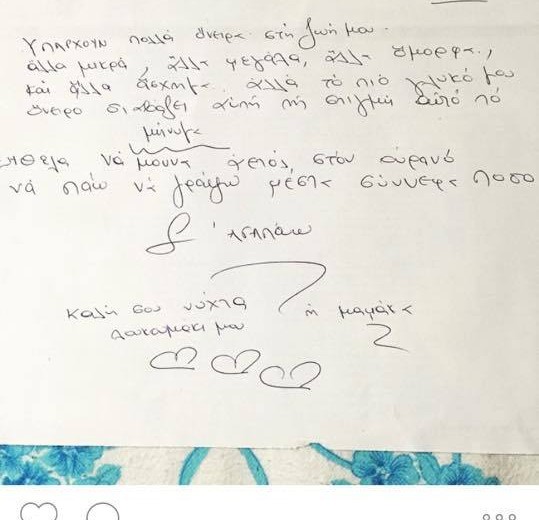 ΥΠΑΡΧΟΥΝ πολλά όνειρα στη ζωή μου.
άλλα μικρά, άλλα μεγάλα, άλλα όμορφα,
και άλλα άσχημα. αλλά το πιό γλυκό μου
όνειρο διαβάζει αυτή τή στιγμή αυτό τό
μήνυμα
ήθελα νά μουνα αετός στόν ουρανό
νά πάω νά γράψω μέσα σύννεφα πόσο
Σ'ΑΓΑΠάω
καλή σου νύχτα
λουκουμάκι μου
η μαμάκα